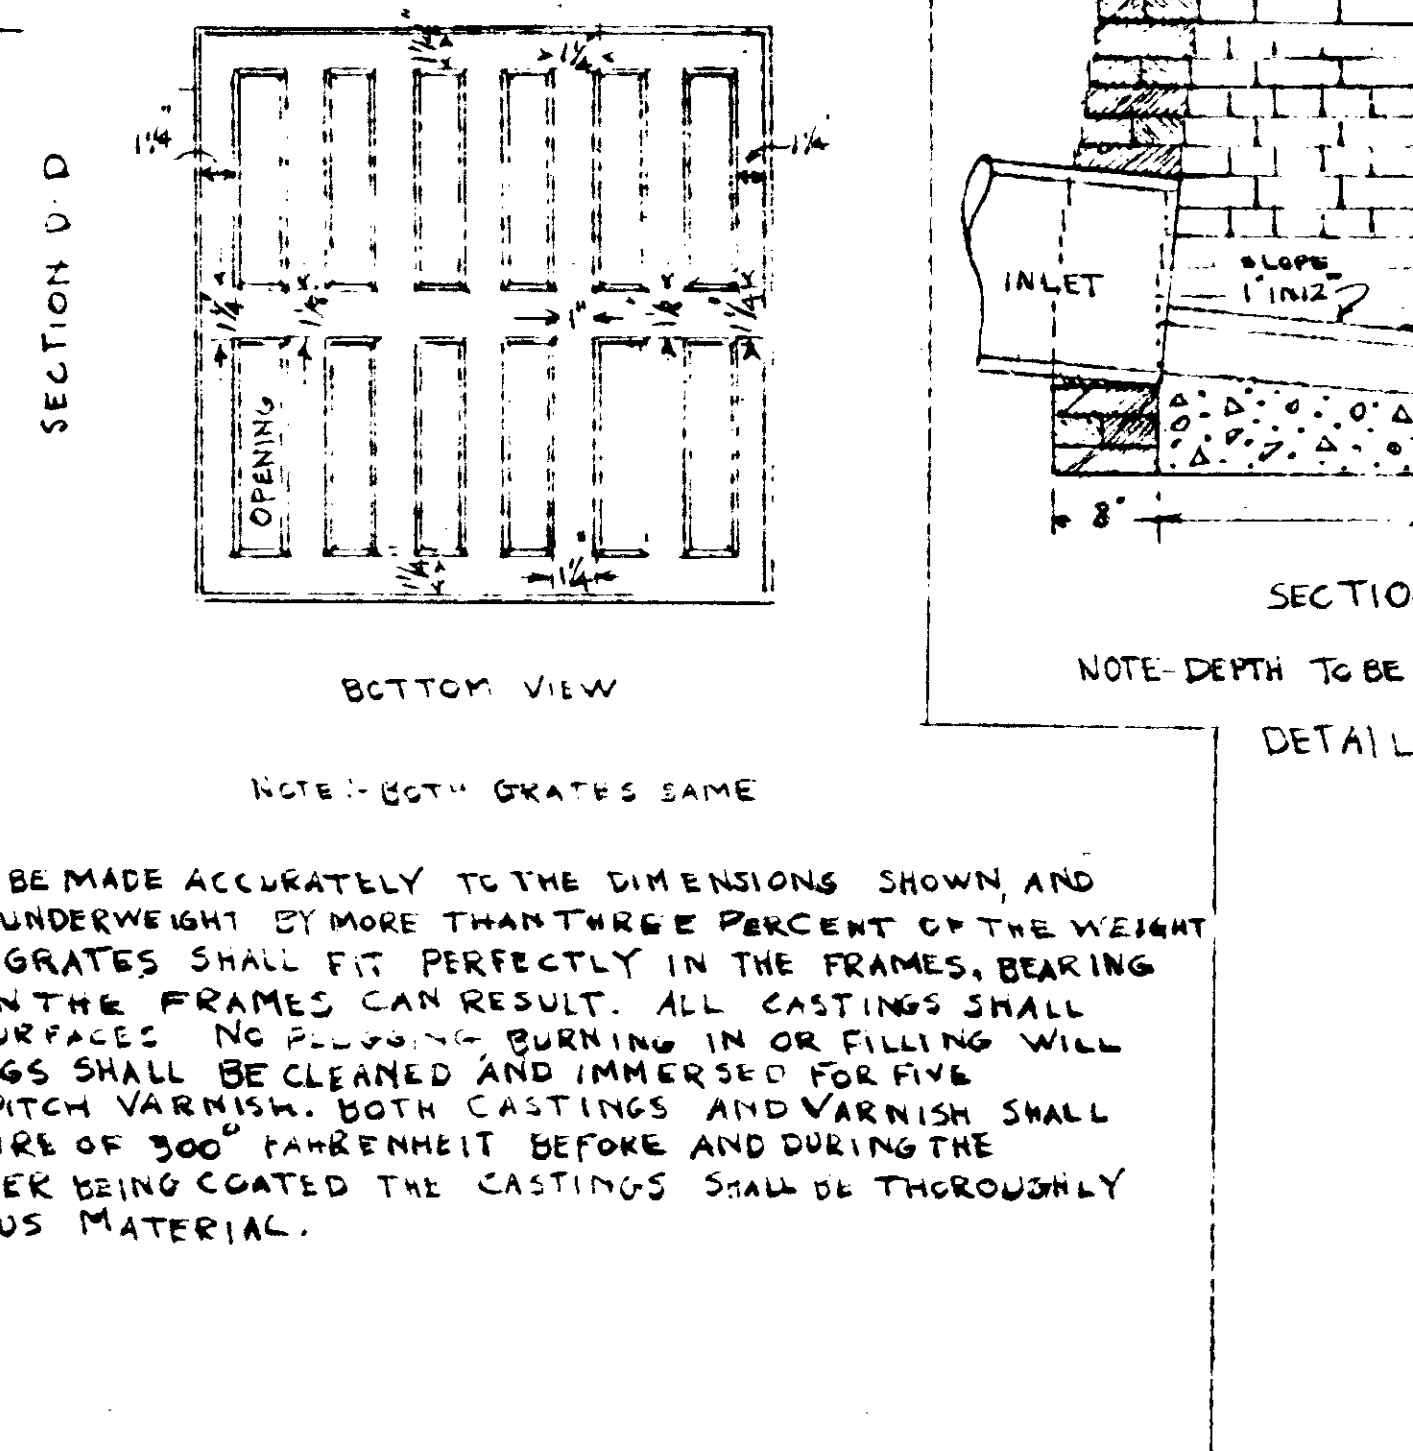 SECTION D-D
1¼"
1¼"
1¼"
1¼"
1¼"
1"
1¼"
OPENING
1¼"
1¼"
BOTTOM VIEW
NOTE:- BOTH GRATES SAME
INLET
SLOPE
1" IN 12"
8"
SECTIO
NOTE-DEPTH TO BE
DETAIL
BE MADE ACCURATELY TO THE DIMENSIONS SHOWN, AND
UNDERWEIGHT BY MORE THAN THREE PERCENT OF THE WEIGHT
GRATES SHALL FIT PERFECTLY IN THE FRAMES, BEARING
N THE FRAMES CAN RESULT. ALL CASTINGS SHALL
URFACES NO PLUGGING, BURNING IN OR FILLING WILL
GS SHALL BE CLEANED AND IMMERSED FOR FIVE
PITCH VARNISH. BOTH CASTINGS AND VARNISH SHALL
RE OF 300° FAHRENHEIT BEFORE AND DURING THE
ER BEING COATED THE CASTINGS SHALL BE THOROUGHLY
US MATERIAL.